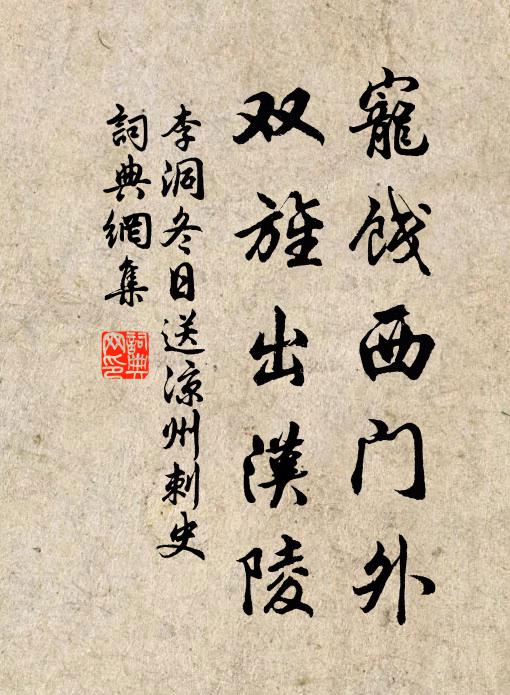 寵餞西门外
双旌出漢陵
李洞冬日送凉州刺史
詞典網集
詞典网印